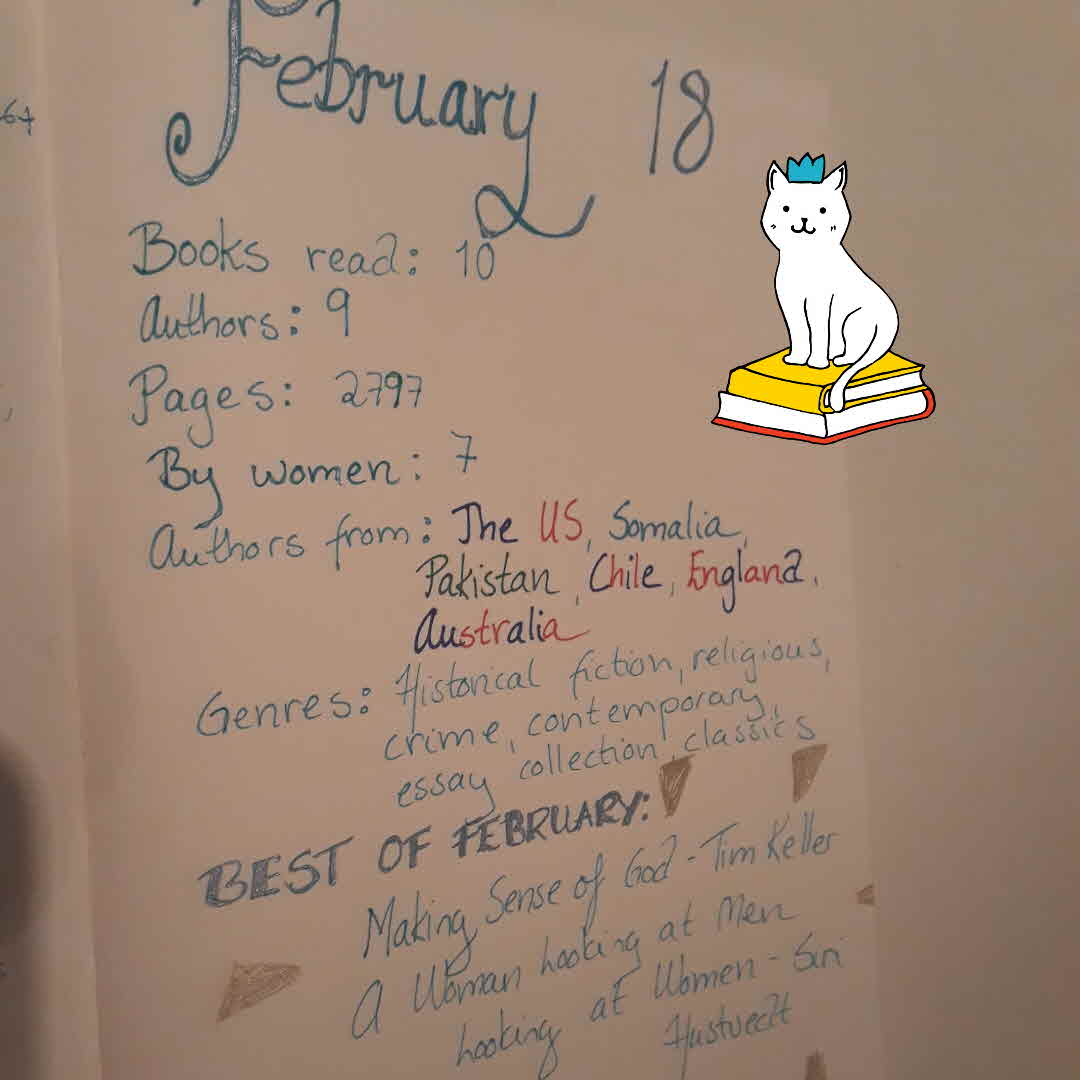 February 18
67
Books read: 10
Authors: 9
Pages: 2797
By women: 7
Authors from: The US, Somalia,
Pakistan, Chile, England,
Australia
Genres: Historical fiction, religious,
crime, contemporary,
essay collection, classics
BEST OF FEBRUARY:
Making Sense of God - Tim Keller
A Woman looking at Men
looking at Women - Siri
Hustvedt